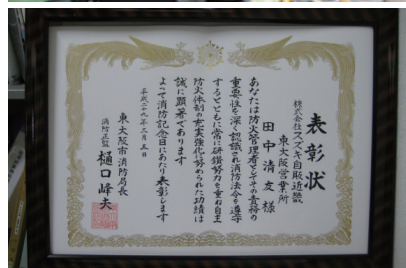 表彰状
株式会社スズキ自販近畿
東大阪営業所
田中清友様
あなたは防火管理者としてその責務の
重要性を深く認識され消防法令を遵守
するとともに常に研鑽努力を重ね自主
防火体制の充実強化に努められた功績は
誠に顕著であります
よって消防記念日にあたり表彰します
平成二十九年三月五日
東大阪市消防局長
消防正監 樋口峰夫